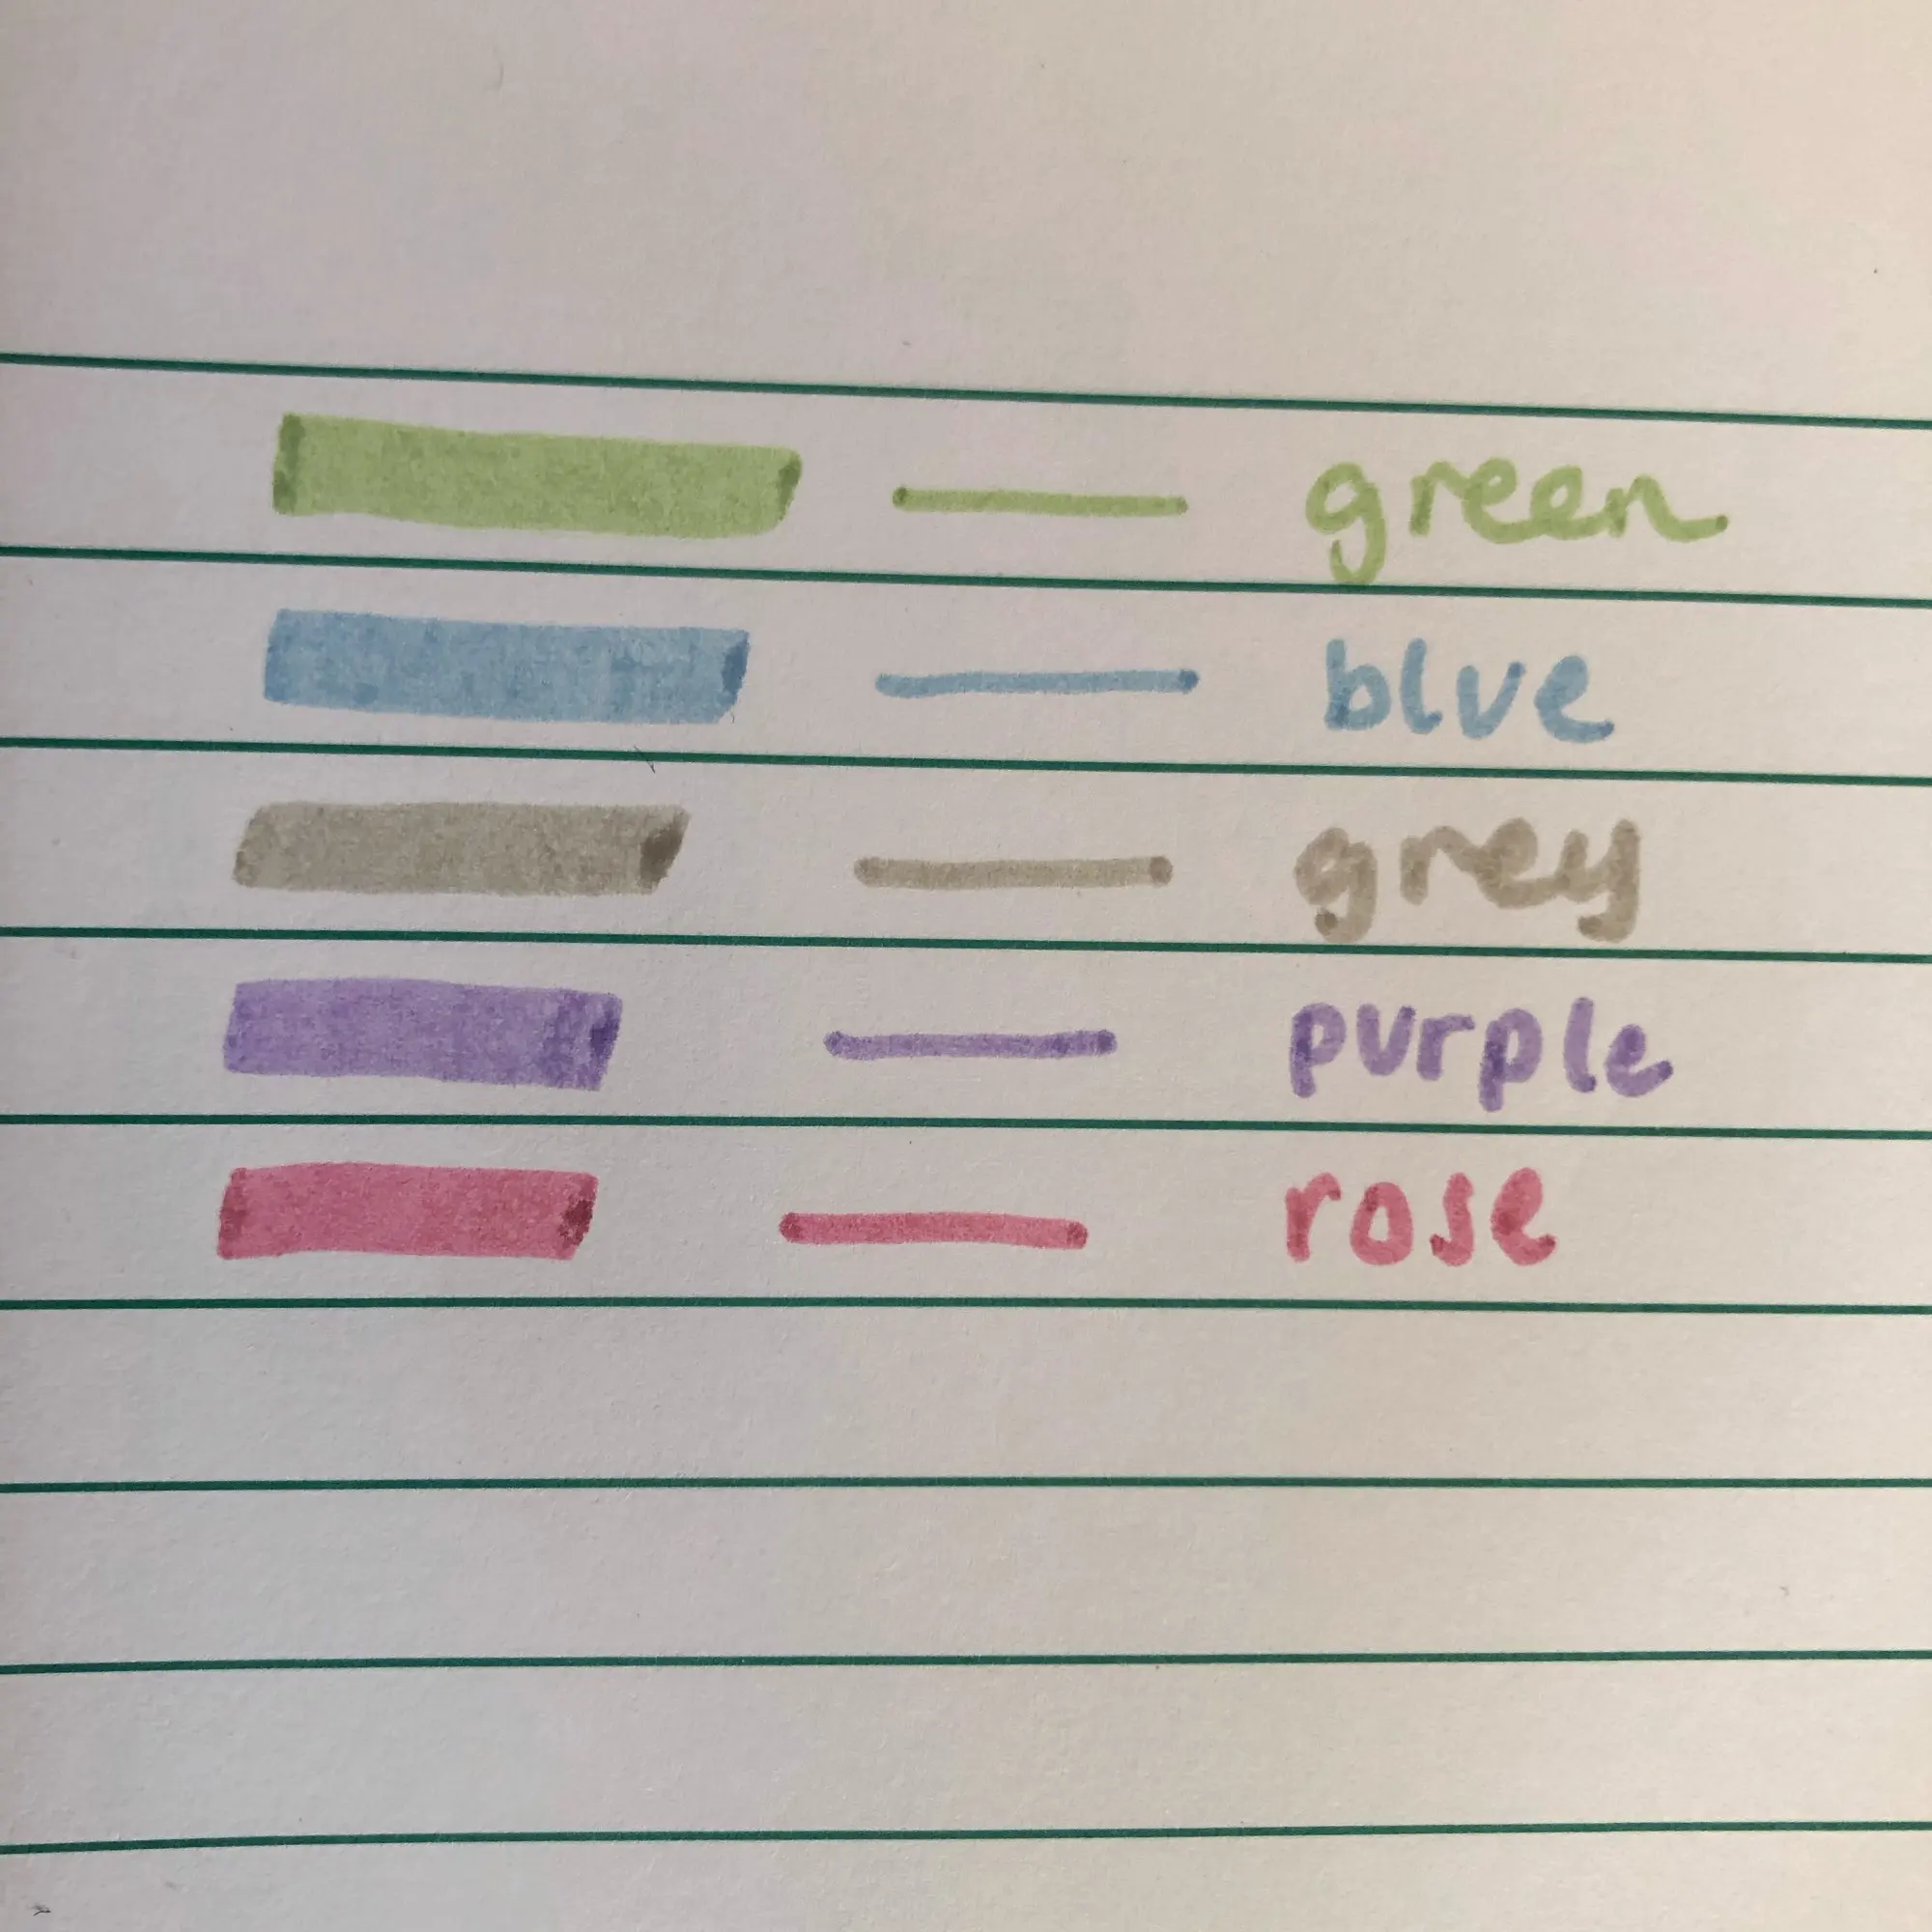 green
blue
grey
purple
rose